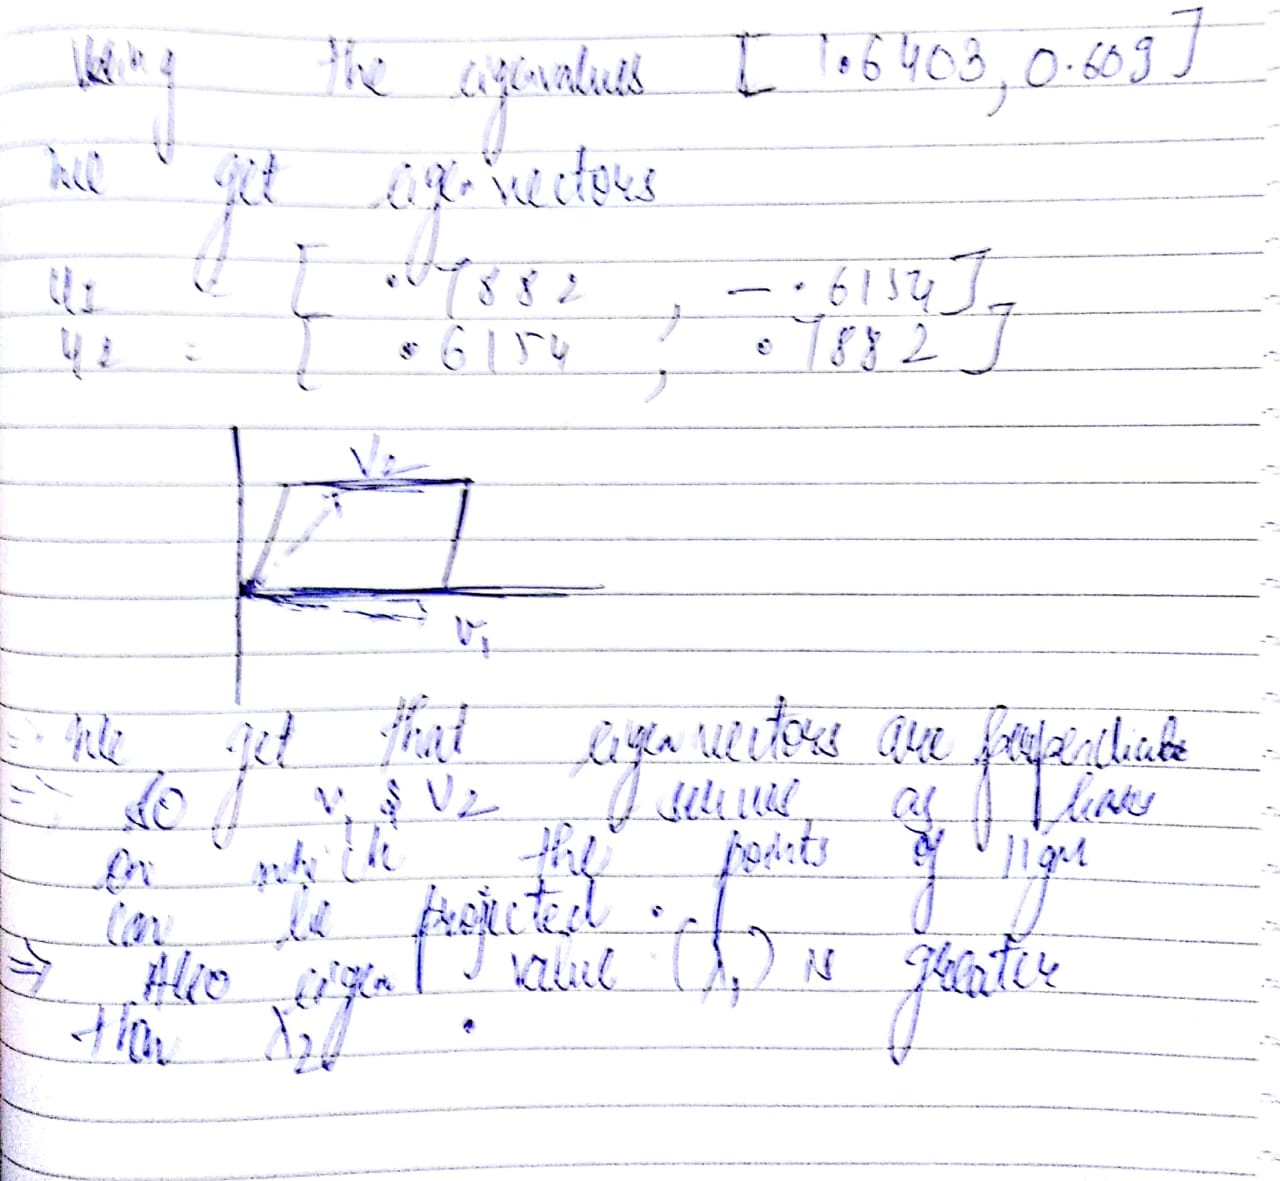 Using the eigenvalues [ 1.6403, 0.609]
we get eigen vectors
u1 = [ .7882 , - .6154]
u2 = [ .6154 , .7882 ]
V2
v1
we get that eigen vectors are perpendicular
⇒ so v1 & V2 serves as
on which the points of 11gm
can be projected .
⇒ Also eigen value (λ1) is greater
than λ2 .